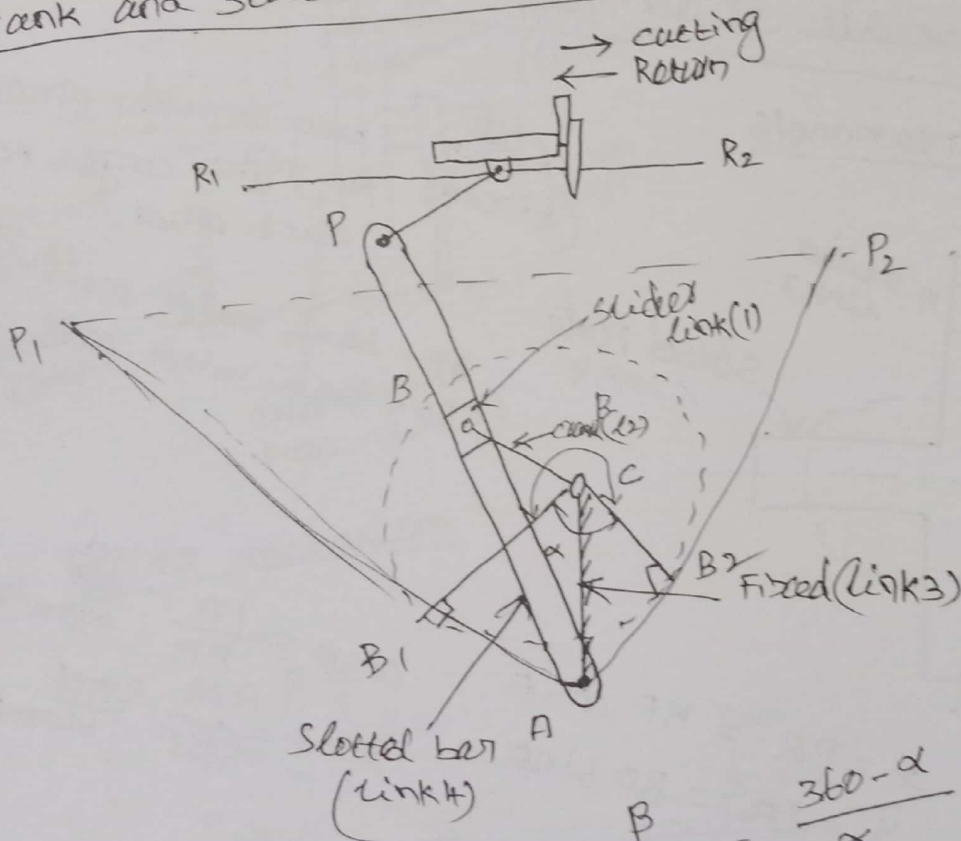 ank and
→ cutting
← Return
R1
R2
P
P2
P1
slider
link(1)
B
B
(l2)
C
α
B2
Fixed (link3)
B1
A
Slotted bar
(link4)
360-α
β
α